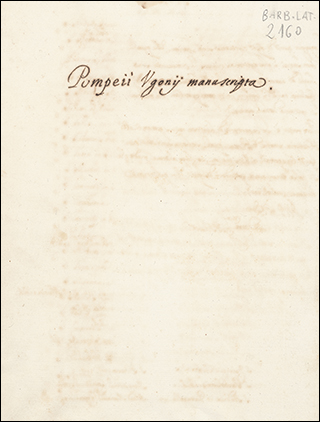 BARB. LAT.
2160
Pompeii Vgonij manuscripta.